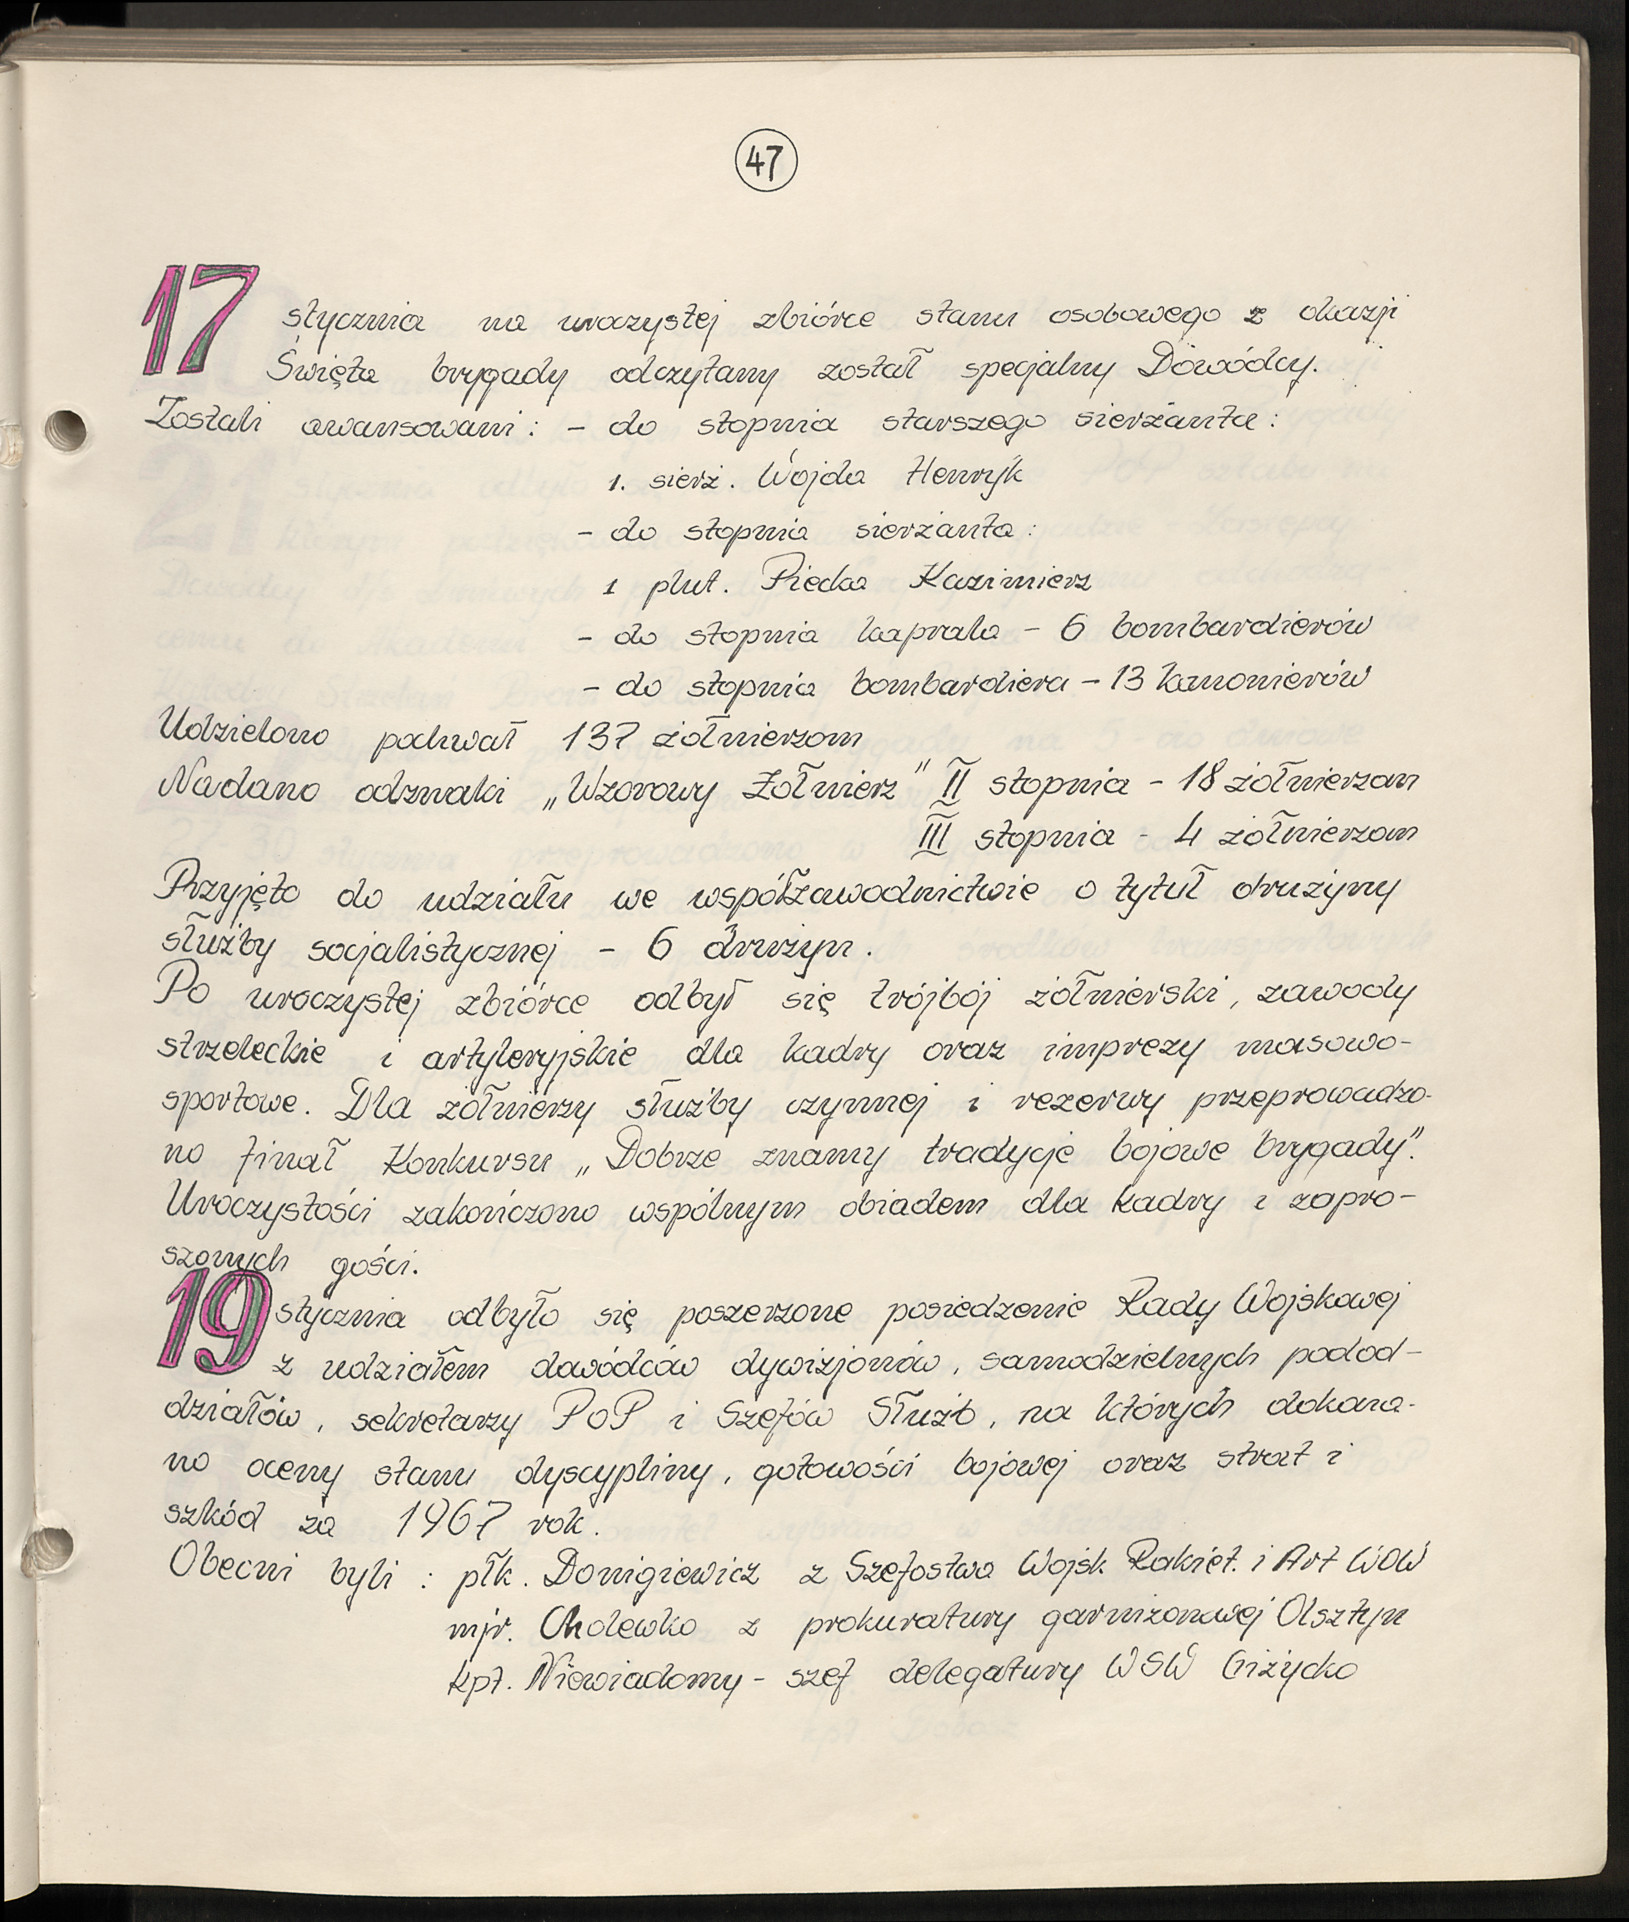 47
17 stycznia na uroczystej zbiórce stanu osobowego z okazji
Święta brygady odczytany został specjalny Dowódcy.
Zostali awansowani: - do stopnia starszego sierżanta:
1. sierż. Wojda Henryk
- do stopnia sierżanta:
1 plut. Piecka Kazimierz
- do stopnia kaprala - 6 bombardierów
- do stopnia bombardiera - 13 kanonierów
Udzielono pochwał 137 żołnierzom
Nadano odznaki „Wzorowy Żołnierz” II stopnia - 18 żołnierzom
III stopnia - 4 żołnierzom
Przyjęto do udziału we współzawodnictwie o tytuł drużyny
służby socjalistycznej - 6 drużyn.
Po uroczystej zbiórce odbył się trójbój żołnierski, zawody
strzeleckie i artyleryjskie dla kadry oraz imprezy masowo-
sportowe. Dla żołnierzy służby czynnej i rezerwy przeprowadzo-
no finał Konkursu „Dobrze znamy tradycje bojowe brygady”.
Uroczystości zakończono wspólnym obiadem dla kadry i zapro-
szonych gości.
19 stycznia odbyło się poszerzone posiedzenie Rady Wojskowej
z udziałem dowódców dywizjonów, samodzielnych podod-
działów, sekretarzy POP i Szefów Służb, na których dokona-
no oceny stanu dyscypliny, gotowości bojowej oraz strat i
szkód za 1967 rok.
Obecni byli: płk. Domigiewicz z Szefostwa Wojsk Rakiet. i Art WOW
mjr. Cholewko z prokuratury garnizonowej Olsztyn
kpt. Niewiadomy - szef delegatury WSW Giżycko